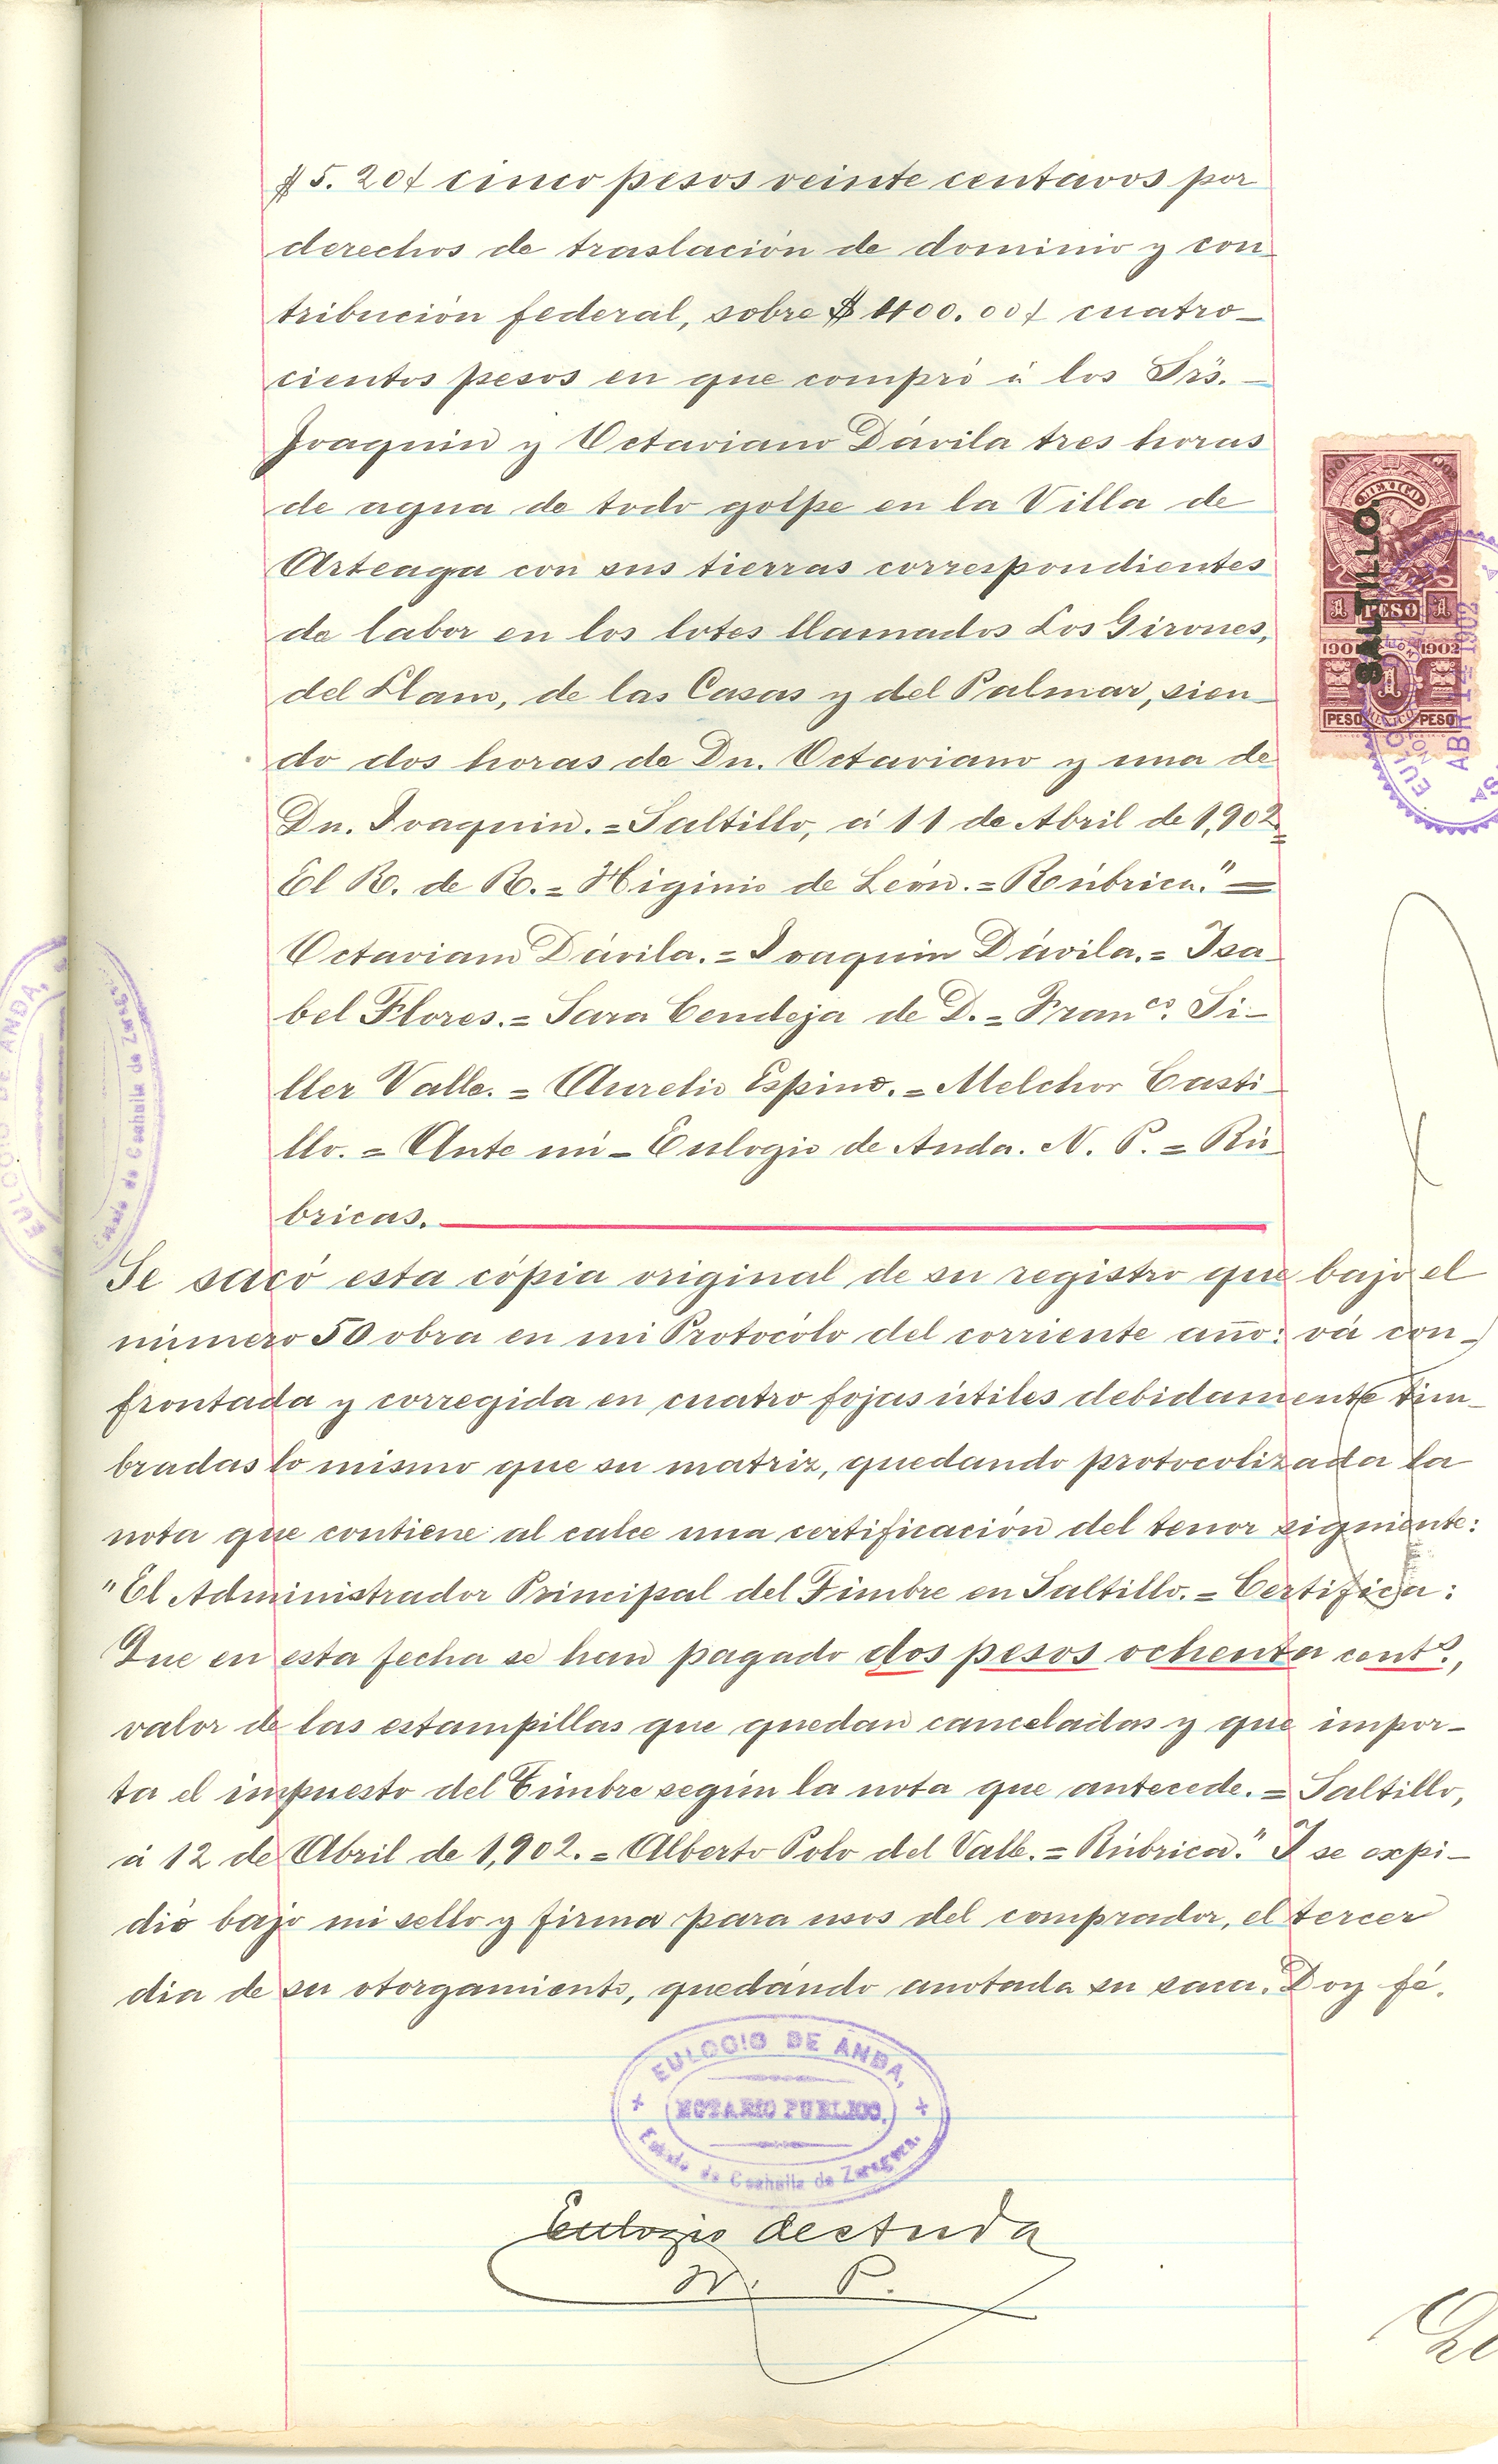 $5.20ȼ cinco pesos veinte centavos por
derechos de traslación de dominio y con
tribución federal, sobre $400.00ȼ cuatro-
cientos pesos en que compró á los Srs.-
Joaquin y Octaviano Dávila tres horas
de agua de todo golpe en la Villa de
Arteaga con sus tierras correspondientes
de labor en los lotes llamados Los Girones,
del Llano, de las Casas y del Palmar, sien
do dos horas de Dn. Octaviano y una de
Dn. Joaquin.=Saltillo, á 11 de Abril de 1,902.=
El R. de R.=Higinio de León.=Rúbrica."=
Octaviano Dávila.=Joaquin Dávila.=Isa
bel Flores.=Sara Cendeja de D.=Franco. Si-
ller Valle.=Aurelio Espino.=Melchor Casti
llo.=Ante mi-Eulogio de Anda. N. P.=Rú
bricas.
Se sacó esta cópia original de su registro que bajo el
número 50 obra en mi Protócolo del corriente año: vá con-
frontada y corregida en cuatro fojas útiles debidamente tim-
bradas lo mismo que su matriz, quedando protocolizada la
nota que contiene al calce una certificación del tenor siguiente:
"El Administrador Principal del Timbre en Saltillo.=Certifica:
Que en esta fecha se han pagado dos pesos ochenta cents.,
valor de las estampillas que quedan canceladas y que impor-
ta el impuesto del Timbre según la nota que antecede.=Saltillo,
á 12 de Abril de 1,902.=Alberto Polo del Valle.=Rúbrica." Y se expi-
dió bajo mi sello y firma para usos del comprador, el tercer
dia de su otorgamiento, quedando anotada su saca. Doy fé.
EULOGIO DE ANDA,
NOTARIO PUBLICO.
Estado de Coahuila de Zaragoza.
Eulogio de Anda
N. P.
1901 1902
MEXICO
SALTILLO.
1 PESO 1
1901 1902
1
PESO MEXICO PESO
ABR 12 1902
EULOGIO DE ANDA,
Estado de Coahuila de Zaragoza